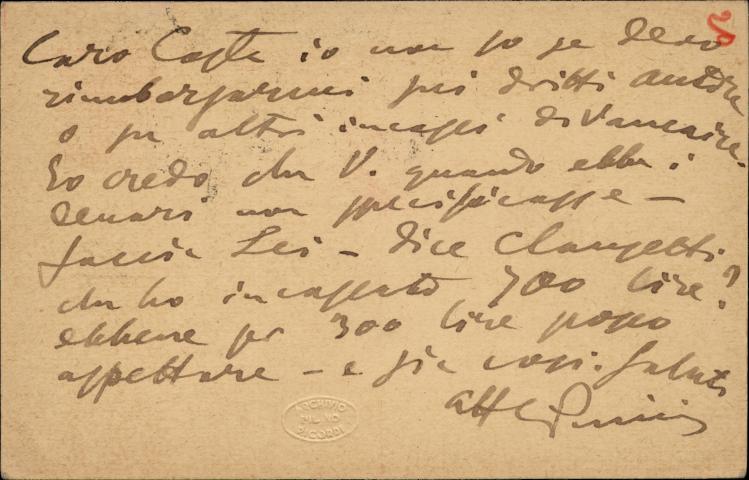 Caro Caste io non so se devo
rimborsarmi sui diritti autore
o su altri incassi di Vancaire.
Io credo che V. quando ebbe i
denari non specificasse —
faccia Lei — dice Clausetti
che ho incassato 700 lire?
ebbene per 300 lire posso
aspettare — e sia così. Saluti
aff G Puccini
ARCHIVIO
MILANO
RICORDI